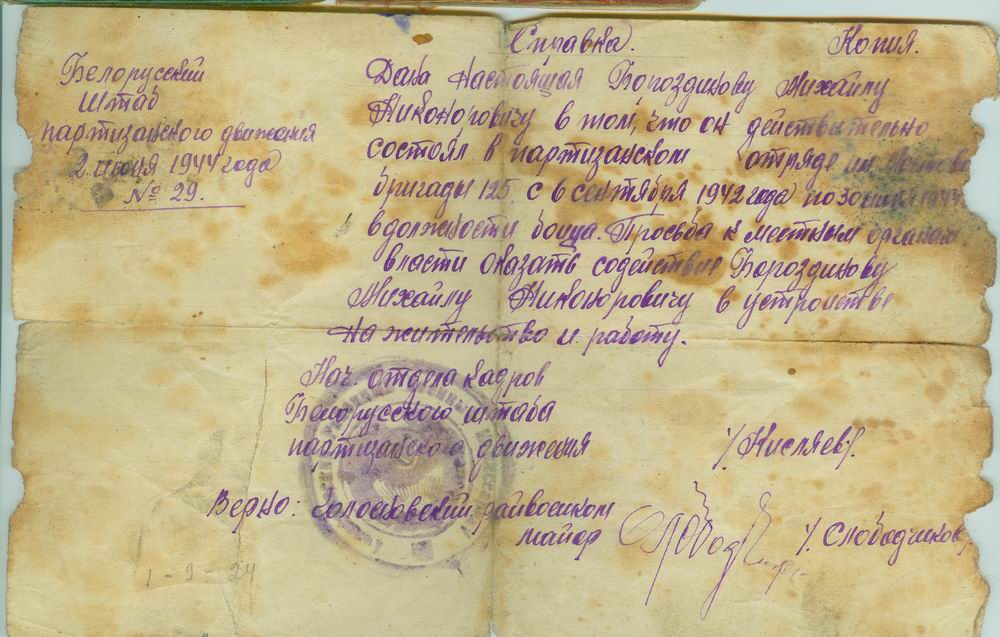 Справка. Копия.
Белорусский
Штаб
партизанского движения
2 июня 1944 года
№ 29.
Дана настоящая Бороздинову Михаилу
Никоноровичу в том, что он действительно
состоял в партизанском отряде им.
бригады 125. с 6 сентября 1942 года по 30
в должности бойца. Просьба к местным органам
власти оказать содействие Бороздинову
Михаилу Никоноровичу в устройстве
на жительство и работу.
Нач. отдела кадров
Белорусского штаба
партизанского движения /Кисляев/.
Верно: райвоенком
майор /Слободчиков
1-9-24